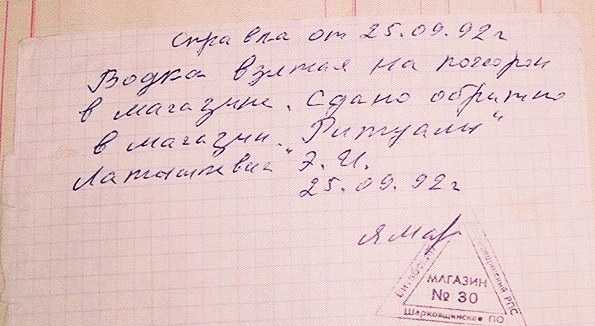 Справка от 25.09.92г
Водка взятая на похорон
в магазине. Сдано обратно
в магазин. "Ритуалы"
Э. И.
25.09.92г
МАГАЗИН
№ 30
Шарковщинское ПО
РПС